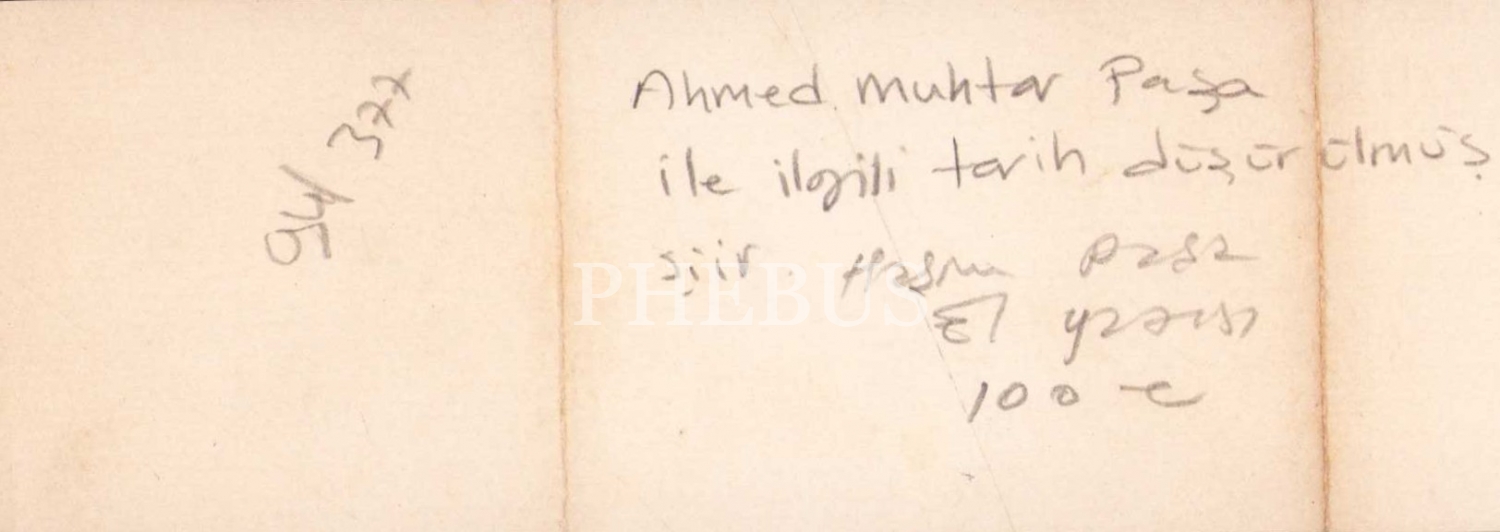 94/
Ahmed Muhtar Paşa
ile ilgili tarih düşürülmüş
şiir. Haşim Paşa
El yazısı
100 e
PHEBUS